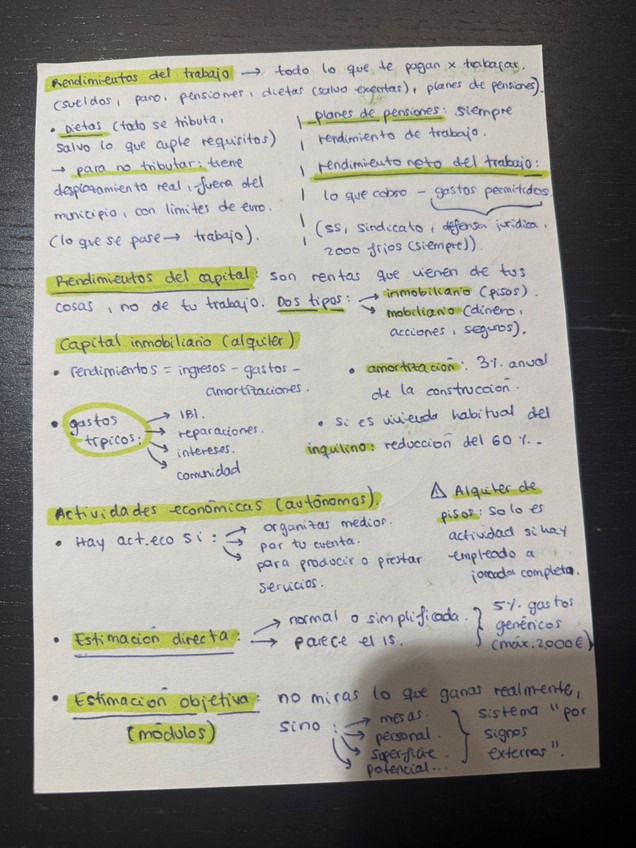 Rendimientos del trabajo → todo lo que te pagan x trabajar.
(sueldos, paro, pensiones, dietas (salvo exentas), planes de pensiones).
• Dietas (todo se tributa,
salvo lo que cuple requisitos)
→ para no tributar: tiene
desplazamiento real, fuera del
municipio, con límites de euro.
(lo que se pase → trabajo).
planes de pensiones: siempre
rendimiento de trabajo.
rendimiento neto del trabajo:
lo que cobro - gastos permitidos
(SS, sindicato, defensa jurídica,
2000 fijos (siempre)).
Rendimientos del capital: son rentas que vienen de tus
cosas, no de tu trabajo. Dos tipos: → inmobiliario (pisos).
→ mobiliario (dinero,
acciones, seguros).
Capital inmobiliario (alquiler)
• rendimientos = ingresos - gastos -
amortizaciones.
• gastos típicos: → IBI.
→ reparaciones.
→ intereses.
→ comunidad
• amortización: 3% anual
de la construcción.
• Si es vivienda habitual del
inquilino: reducción del 60%..
Actividades económicas (autónomos).
• Hay act.eco si: → organizas medios.
→ por tu cuenta.
→ para producir o prestar
servicios.
⚠ Alquiler de
pisos: solo es
actividad si hay
empleado a
jornada completa.
• Estimación directa: → normal o simplificada.
→ parece el IS.
} 5% gastos
genéricos
(máx. 2,000€)
• Estimación objetiva: no miras lo que ganas realmente,
(módulos)
sino: → mesas.
→ personal.
→ superficie.
→ potencial...
} sistema "por
signos
externos".